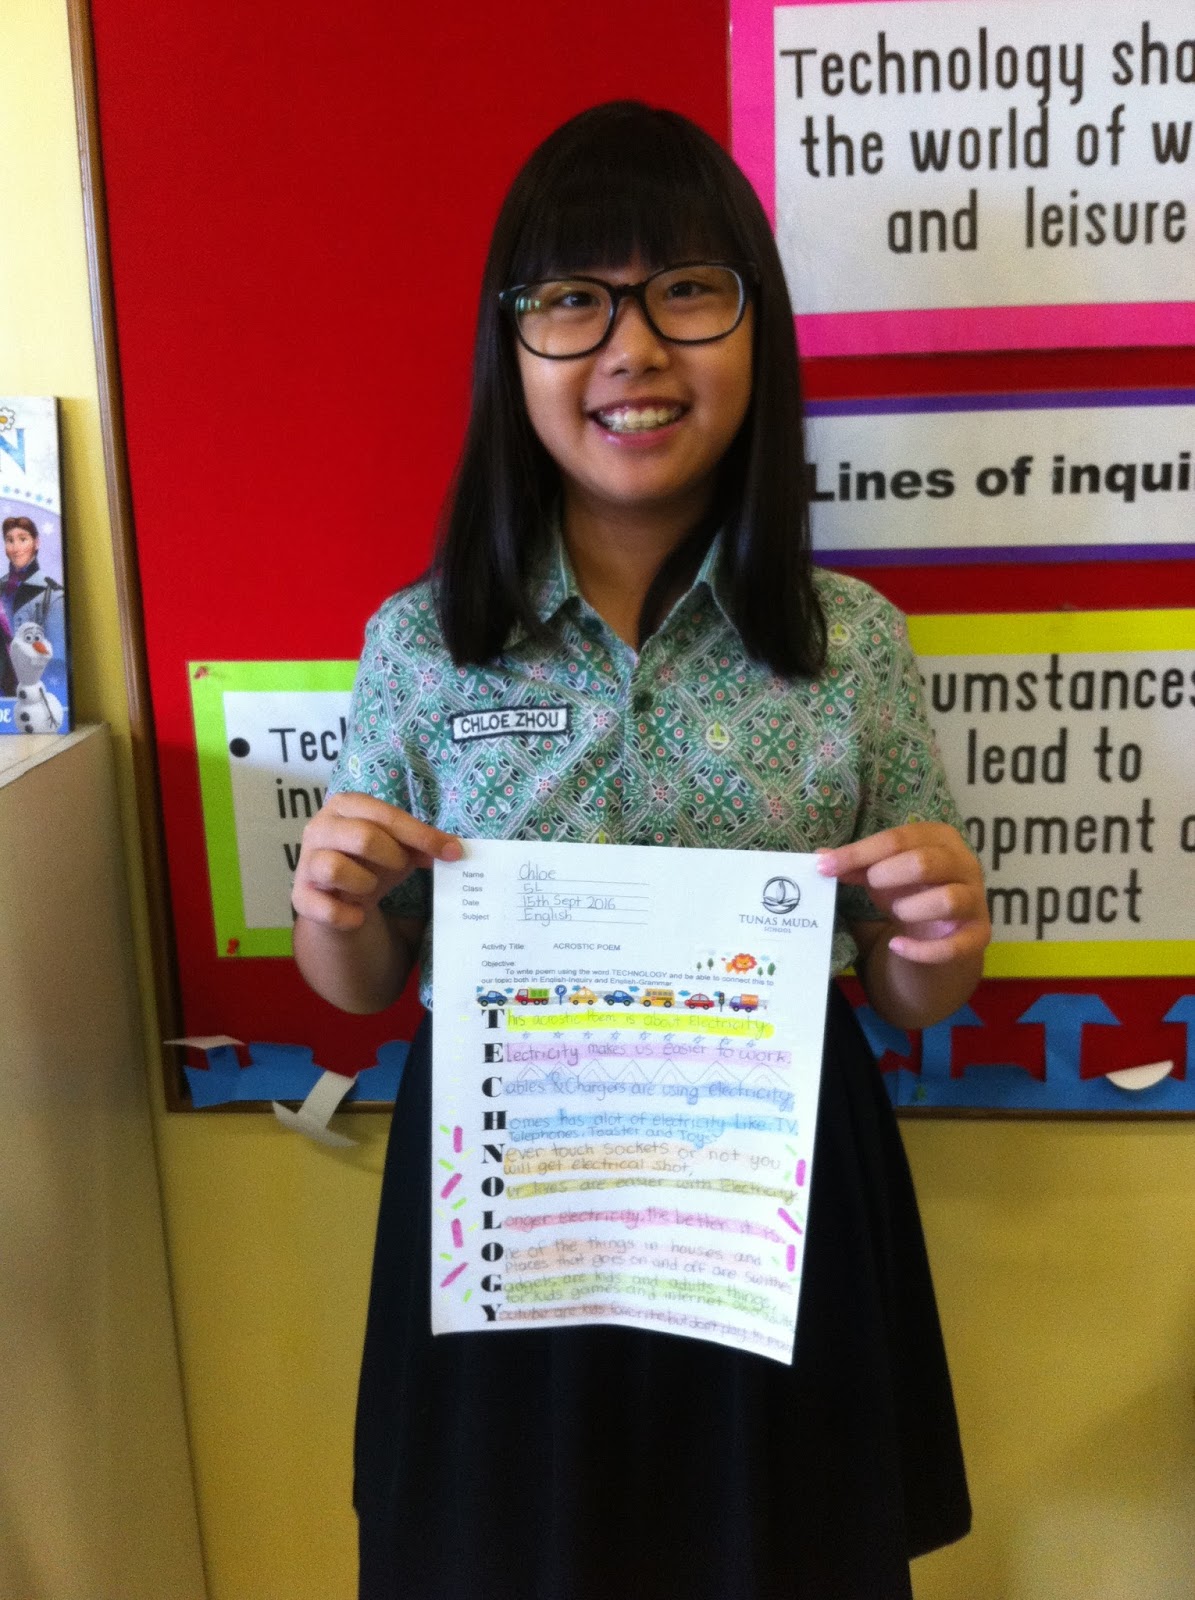 Technology sha
the world of w
and leisure
Lines of inqui
umstances
lead to
opment o
mpact
Tec
inv
N
CHLOE ZHOU
Name Chloe
Class : 5L
Date : 15th Sept 2016
Subject : English
TUNAS MUDA
SCHOOL
Activity Title: ACROSTIC POEM
Objective:
To write poem using the word TECHNOLOGY and be able to connect this to
our topic both in English-Inquiry and English-Grammar
This acrostic Poem is about Electricity
Electricity makes us easier to work.
Cables & Chargers are using electricity,
Homes has alot of electricity Like: TV,
Telephones, Toaster and Toys
Never touch sockets or not you
will get electrical shot,
Our lives are easier with Electricity
Longer electricity, the better it is
One of the things in houses and
places that goes on and off are swithes
Gadgets are kids and adults things,
for kids games and internet
Youtube are kids favorite, but don't play